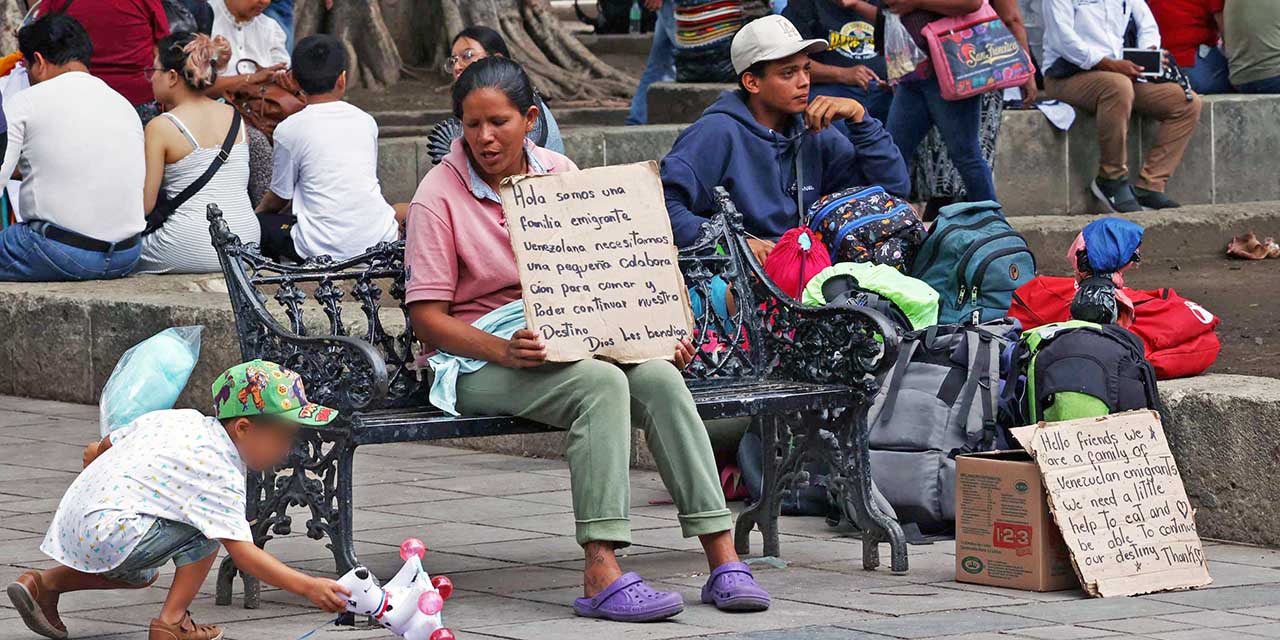 Hola somos una
familia emigrante
venezolana necesitamos
una pequeña colabora
cion para comer y
Poder continuar nuestro
Destino
Dios les bendiga
Hello friends we
are a family of
Venezuelan emigrants
we need a little
help to eat and
be able to continue
our destiny Thank
1-2-3
San Francisco
LA